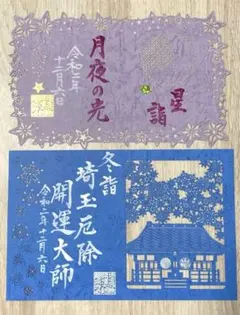 星詣
月夜の光
令和二年
十二月六日
冬詣
埼玉厄除
開運大師
令和二年十二月六日